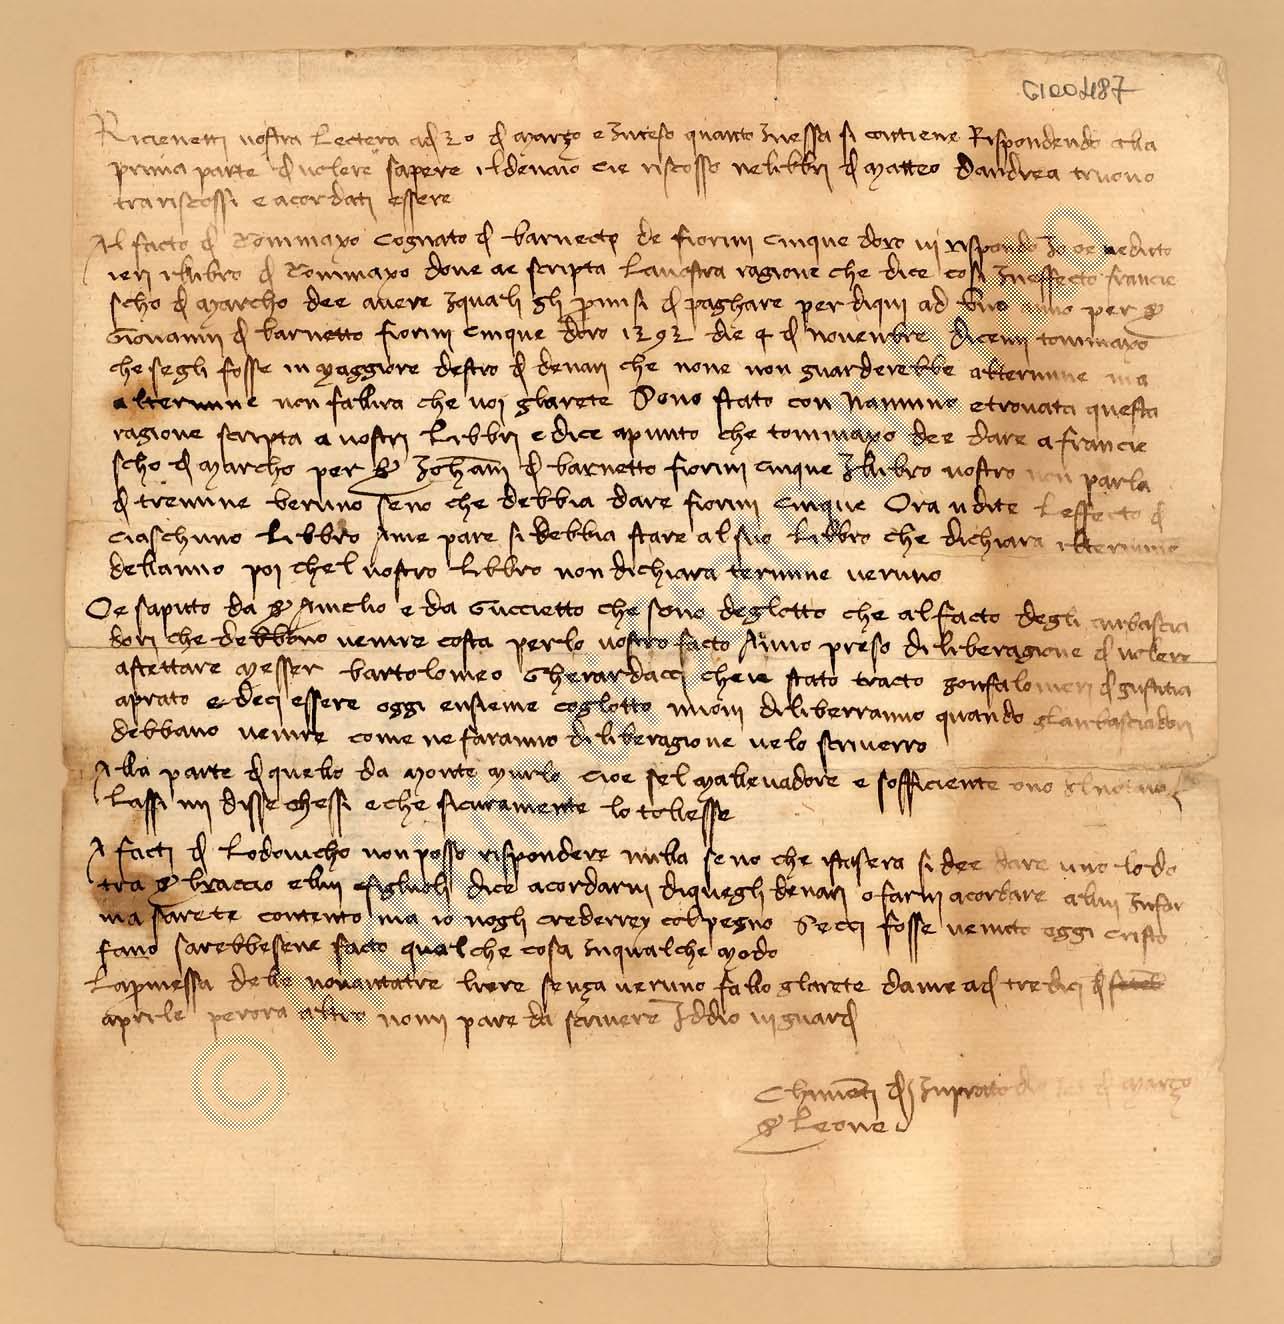 6100487
Ricievetti vostra lectera adì 20 di março e inteso quanto inessa si contiene Rispondendo alla
prima parte di volere sapere ildenaio cie riscosso nelibbri di Matteo dandrea truovo
trariscossi e acordati essere
Al facto di Tommaxo cognato di barnecto de fiorini cinque doro vi rispondo Io oe vedutto
ieri illibro di Tommaxo dove ae scripta lavostra ragione che dice così Ineffecto francie
scho di Marcho dee avere Iquali gli promisi di paghare per diqui ad uno anno per S
Giovanni di barnetto fiorini cinque doro 1392 die 4 di novenbre dicemi tommaxo
che segli fosse in maggiore destro di denari che none non guarderebbe altermine ma
altermine non fallira che voi glarete Sono stato con Nannino etrovata questa
ragione scripta a vostri libbri edice apunto che tommaxo dee dare a francie
scho di Marcho per S Johanni di barnetto fiorini cinque Illibro vostro non parla
di tremine veruno seno che debbia dare fiorini cinque Ora udite leffecto di
ciaschuno libbro Ame pare si debbia stare al suo libbro che dichiara iltermine
dellanno poi chel vostro libbro non dichiara termine veruno
Oe saputo da S Amelio e da Guccietto che sono deglotto che alfacto degli anbascia
dori che debbono venire costa perlo vostro facto Anno preso diliberagione di volere
aspettare Messer bartolomeo Gherardacci cheie stato tracto gonfaloniere di giustitia
aprato e deci essere oggi ensieme coglotto nuovi diliberranno quando glanbasciadori
debbano venire come ne faranno diliberagione velo scriverro
Alla parte di quello da Monte Murlo cioe sel Mallevadore e sofficiente
lassi mi disse chessi eche sicuramente lo tollesse
A facti di Lodovicho non posso rispondere nulla seno che istasera si dee dare uno lodo
tra S braccio e lui efigliuoli dice acordarvi diquegli denari o farvi acordare a lui Infor
ma sarete contento ma io nogli crederrey col pegno Secci fosse venuto oggi Cristo
fano sarebbesene facto qualche cosa Inqualche modo
Lapromessa delle novantatre lire sença veruno fallo glarete dame adì tredici di
aprile perora altro nonmi pare da scrivere Iddio viguardi
Chimenti di Inprato di março
S Leone